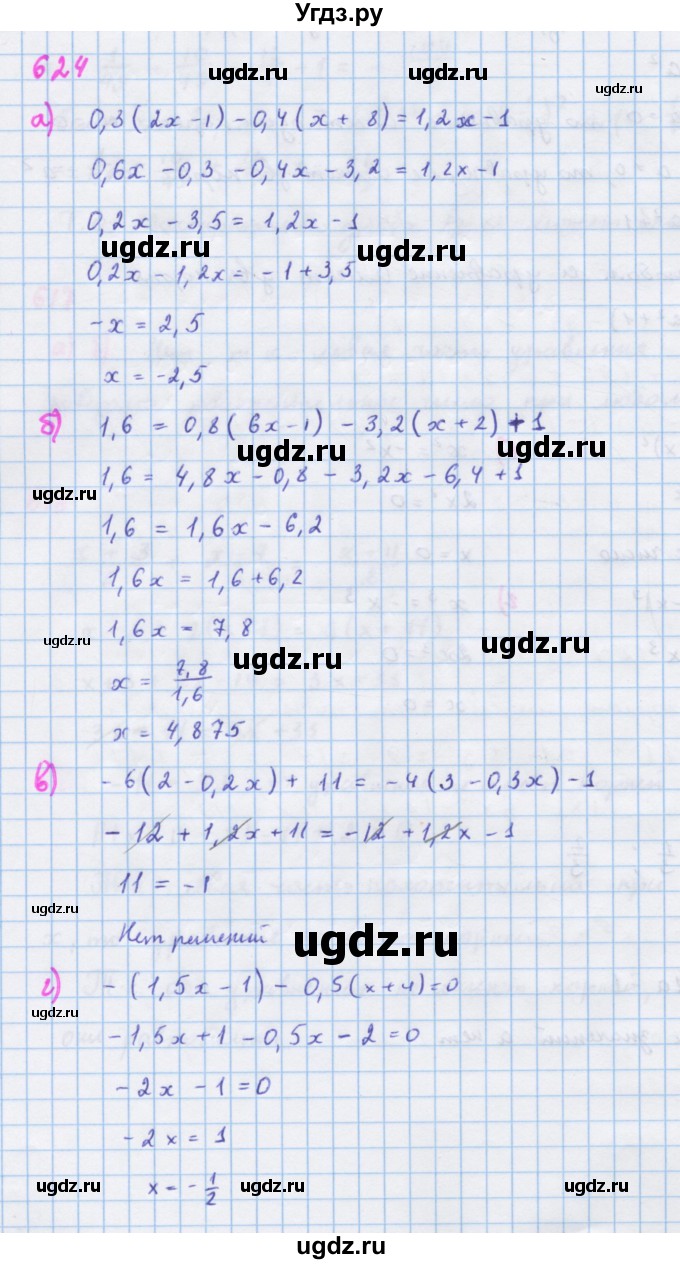 Угдз.ру
624
ugdz.ru ugdz.ru ugdz.ru
а) 0,3(2x-1) - 0,4(x + 8) = 1,2x - 1
0,6x - 0,3 - 0,4x - 3,2 = 1,2x - 1
0,2x - 3,5 = 1,2x - 1
ugdz.ru ugdz.ru
0,2x - 1,2x = -1 + 3,5
-x = 2,5
x = -2,5
б) 1,6 = 0,8(6x-1) - 3,2(x+2) + 1
ugdz.ru ugdz.ru
1,6 = 4,8x - 0,8 - 3,2x - 6,4 + 1
1,6 = 1,6x - 6,2
1,6x = 1,6 + 6,2
1,6x = 7,8
ugdz.ru ugdz.ru ugdz.ru
x = 7,8/1,6
x = 4,875
в) -6(2 - 0,2x) + 11 = -4(3 - 0,3x) - 1
-12 + 1,2x + 11 = -12 + 1,2x - 1
11 = -1
ugdz.ru
Нет решений
ugdz.ru
г) -(1,5x - 1) - 0,5(x+4) = 0
ugdz.ru
-1,5x + 1 - 0,5x - 2 = 0
-2x - 1 = 0
-2x = 1
x = -1/2
ugdz.ru ugdz.ru ugdz.ru
ugdz.ru